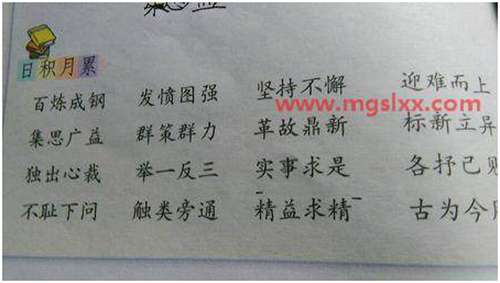 日积月累
百炼成钢 发愤图强 坚持不懈 迎难而上
www.mgslxx.com
集思广益 群策群力 革故鼎新 标新立异
独出心裁 举一反三 实事求是 各抒己
不耻下问 触类旁通 精益求精 古为今